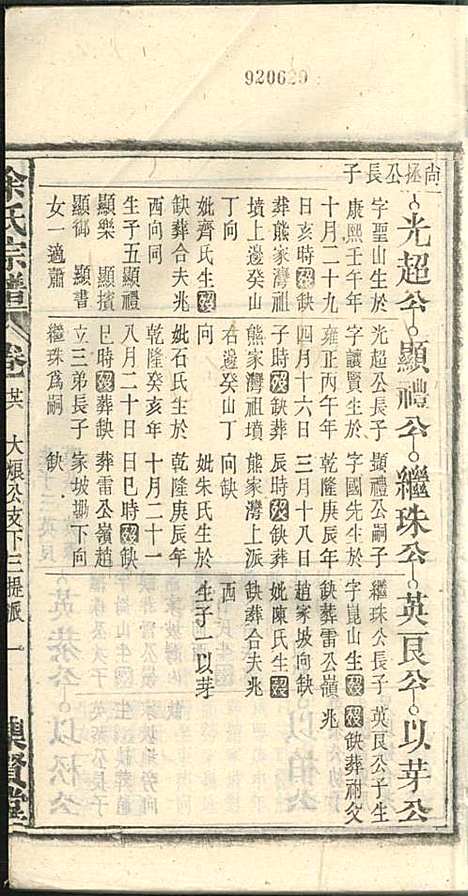 920620
尚拯公長子
光超公 顯禮公 繼珠公 英艮公 以芽公
字聖山生於
康熙壬午年
十月二十九
日亥時歿缺
葬熊家灣祖
墳上邊癸山
丁向
妣齊氏生歿
缺葬合夫兆
西向同
生子五顯禮
顯樂 顯擯
顯御 顯書
女一適蕭
光超公長子
字讓賢生於
雍正丙午年
四月十六日
子時歿缺葬
熊家灣祖墳
右邊癸山丁
向
妣石氏生於
乾隆癸亥年
八月二十日
巳時歿葬缺
立三弟長子
繼珠爲嗣
顯禮公嗣子
字國先生於
乾隆庚辰年
三月十八日
辰時歿缺葬
熊家灣上派
向缺
妣朱氏生於
乾隆庚辰年
十月二十一
日巳時歿缺
葬雷公嶺趙
家坡塌下向
缺
繼珠公長子
字崑山生歿
缺葬雷公嶺
趙家坡向缺
妣陳氏生歿
缺葬合夫兆
西
生子一以芽
英艮公子生
歿缺葬祔父
兆
氏宗譜 卷 大烺公支下三提派 一 賢堂